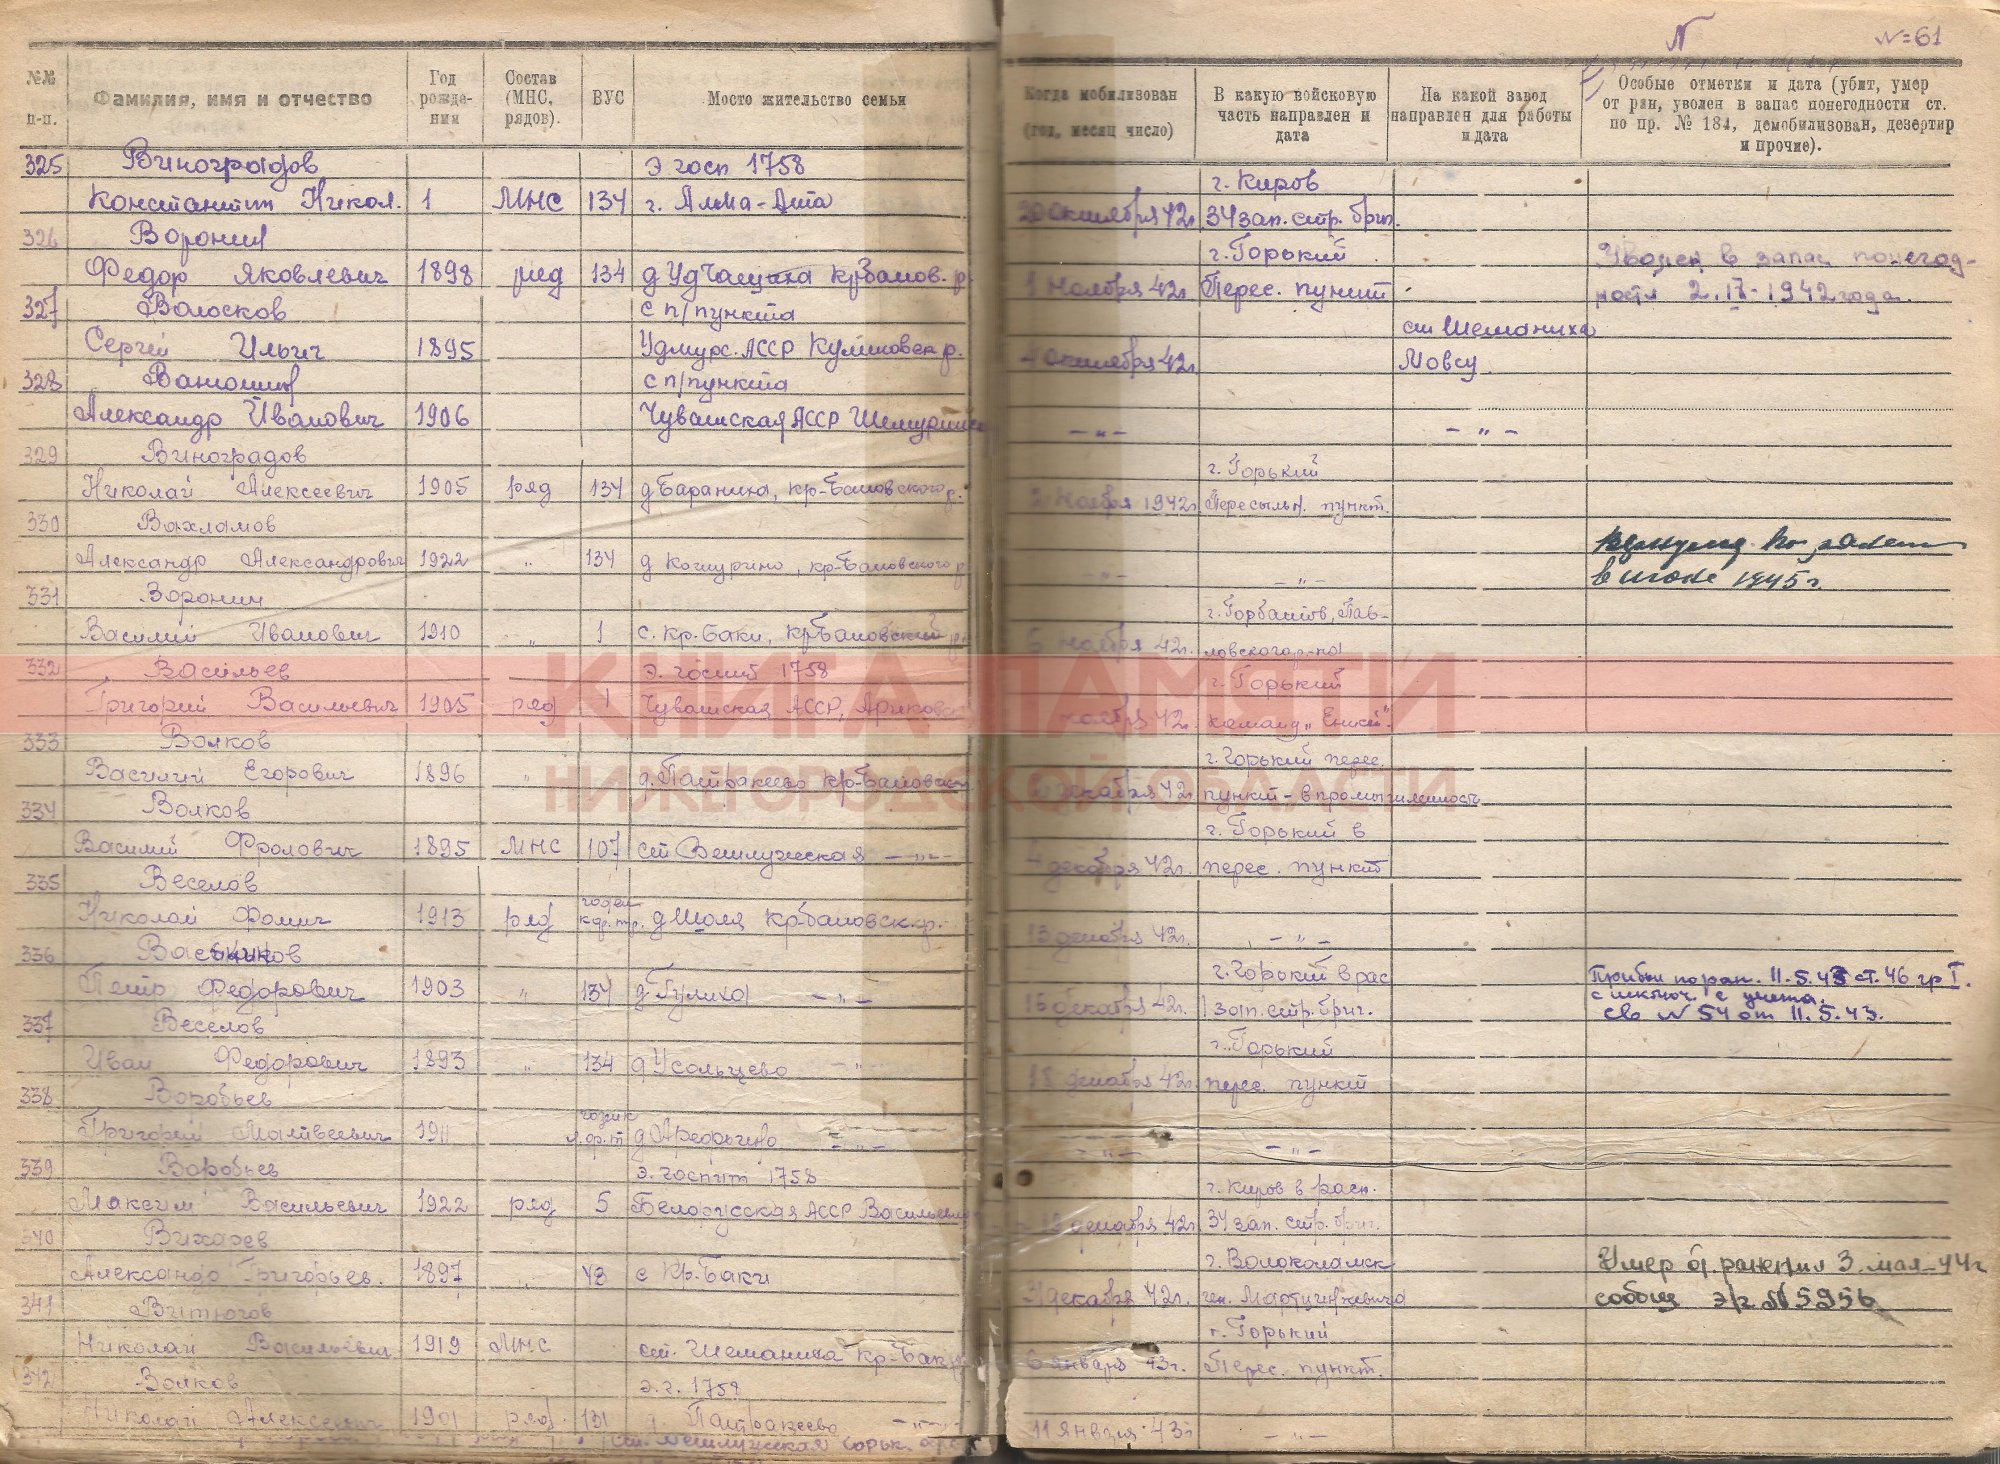 N
N=61
№№ п-п.
Фамилия, имя и отчество
Год рожде- ния
Состав (МНС, рядов).
ВУС
Мосто жительство семьи
Когда мобилизован (год, месяц число)
В какую войсковую часть направлен и дата
На какой завод направлен для работы и дата
Особые отметки и дата (убит, умер от ран, уволен в запас понегодности ст. по пр. № 184, демобилизован, дезертир и прочие).
325 Виноградов э госп 1758 г. Киров
Константин Никол. 1 МНС 134 г. Алма-Ата 20 октября 42г. 34 зап. стр. бриг.
326 Воронин г. Горький Уволен в запас понегод-
Федор Яковлевич 1898 ряд 134 1 ноября 42г. Перес. пункт ности 1942 года.
327 Волосков с п/пункта ст Шеманиха
Сергей Ильич 1895 Удмурс. АССР р. октября 42г. Мовсу
328 Ванюшин с п/пункта
Александр Иванович 1906 Чувашская АССР - " - - " -
329 Виноградов г. Горький
Николай Алексеевич 1905 ряд 134 д Бараниха, кр-Баковского р. ноября 1942г. Пересыльн. пункт.
330 Вахламов
Александр Александрович 1922 " 134 д Кошурино, кр-Баковского р - " - - " - в июле 1945 г.
331 Воронин г. Горбатов, Пав-
Василий Иванович 1910 " 1 с. кр. Баки, крБаковский 6 ноября 42г. ловского р-на
332 Васильев э. госпит 1758 г. Горький
Григорий Васильевич 1905 ряд 1 Чувашская АССР, ноября 42г. команд „Енисей".
КНИГА ПАМЯТИ
НИЖЕГОРОДСКОЙ ОБЛАСТИ
333 Волков г. Горький перес.
Василий Егорович 1896 " д. Патракеево кр-Баковск декабря 42г. пункт - в промышленность
334 Волков г. Горький в
Василий Фролович 1895 МНС 107 ст Ветлужская - " - 4 декабря 42г. перес. пункт
335 Веселов
Николай Фомич 1913 ряд годен к ф. тр. д Шоля кр-баковск.р. 13 декабря 42г. - " -
336 г. Горький в рас
Петр Федорович 1903 " 134 д Гулиха - " - 16 декабря 42г. 1 зап. стр. бриг.
Прибыл по ран. 11.5.43 ст. 46 гр I.
с исключ. с учета.
св N 54 от 11.5.43.
337 Веселов г. Горький
Иван Федорович 1893 " 134 д Усольцево - " - 18 декабря 42г. перес. пункт
338 Воробьев
Григорий Матвеевич 1911 годен к ф. т д - " - - " - - " -
339 Воробьев э. госпит 1758 г. Киров в расп.
Максим Васильевич 1922 ряд 5 Белорусская АССР 19 декабря 42г. 34 зап. стр. бриг.
340 Вихарев г. Волоколамск Умер от ранения 3 мая-44г
Александр Григорьев. 1897 " с Кр. Баки декабря 42г. сообщ э/г N 5956
341 Витюгов г. Горький
Николай Васильевич 1919 МНС ст. Шеманиха кр-Бак 6 января 43г. Перес. пункт.
342 Волков э. г. 1758
Николай Алексеевич 1901 ряд. 131 д. Патракеево - " - 11 января 43г - " -